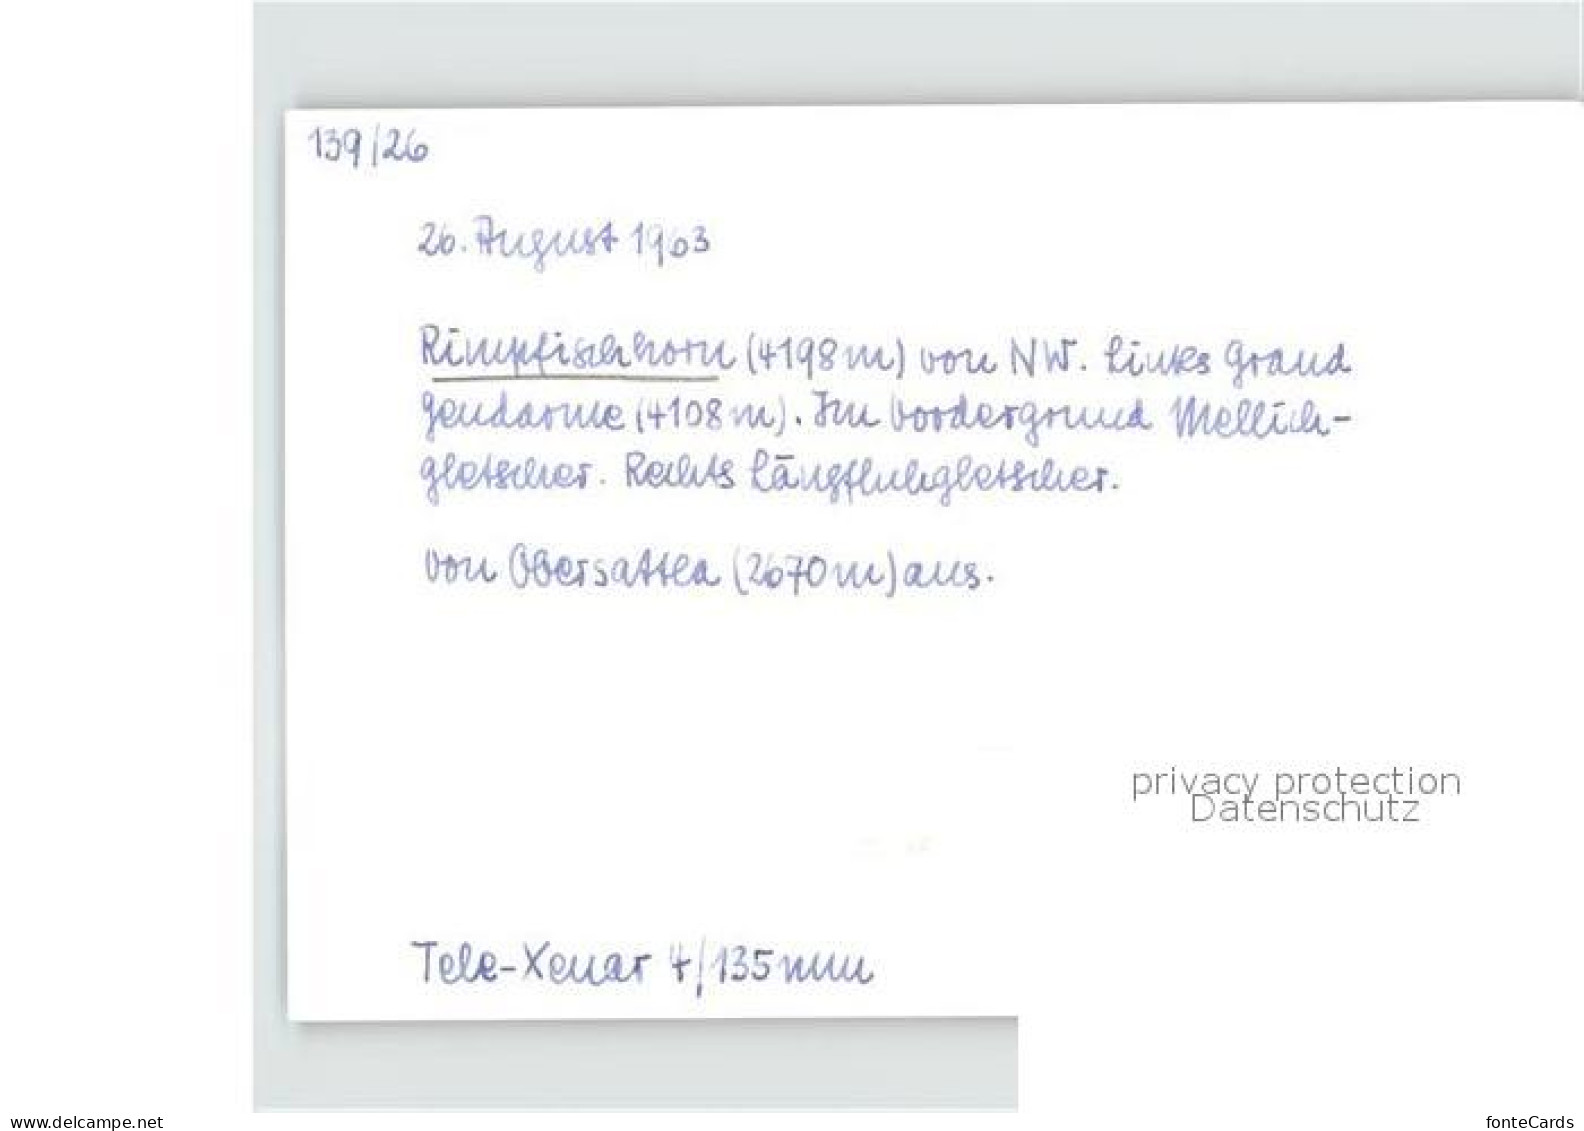 139/26
26. August 1963
Rimpfischhorn (4198m) von NW. Links Grand
Gendarme (4108m). Im Vordergrund Mellich-
gletscher. Rechts Längfluhgletscher.
Von Obersattla (2670m) aus.
privacy protection
Datenschutz
Tele-Xenar 4/135mm
www.delcampe.net
fonteCards